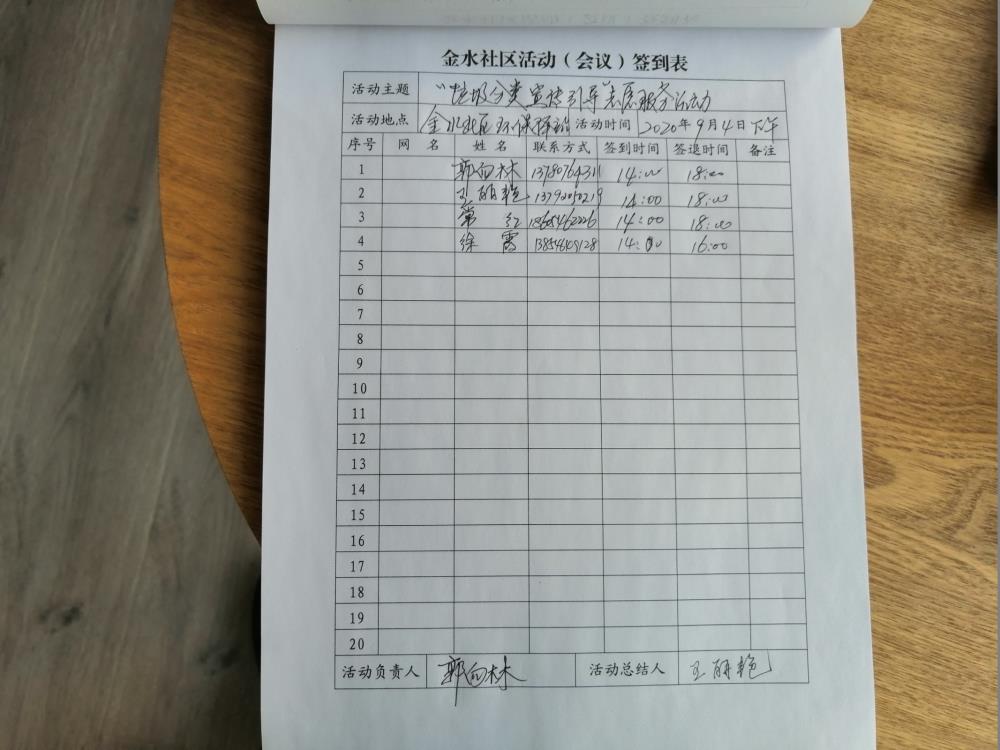 金水社区活动（会议）签到表
活动主题 “垃圾分类宣传引导”志愿服务活动
活动地点 金水社区环保驿站 活动时间 2020年9月4日下午
序号 网 名 姓 名 联系方式 签到时间 签退时间 备注
1 郭向林 13780764311 14:00 18:00
2 王丽艳 13792050219 14:00 18:00
3 常红 18654462226 14:00 18:00
4 徐霞 14:00 16:00
5
6
7
8
9
10
11
12
13
14
15
16
17
18
19
20
活动负责人 郭向林 活动总结人 王丽艳